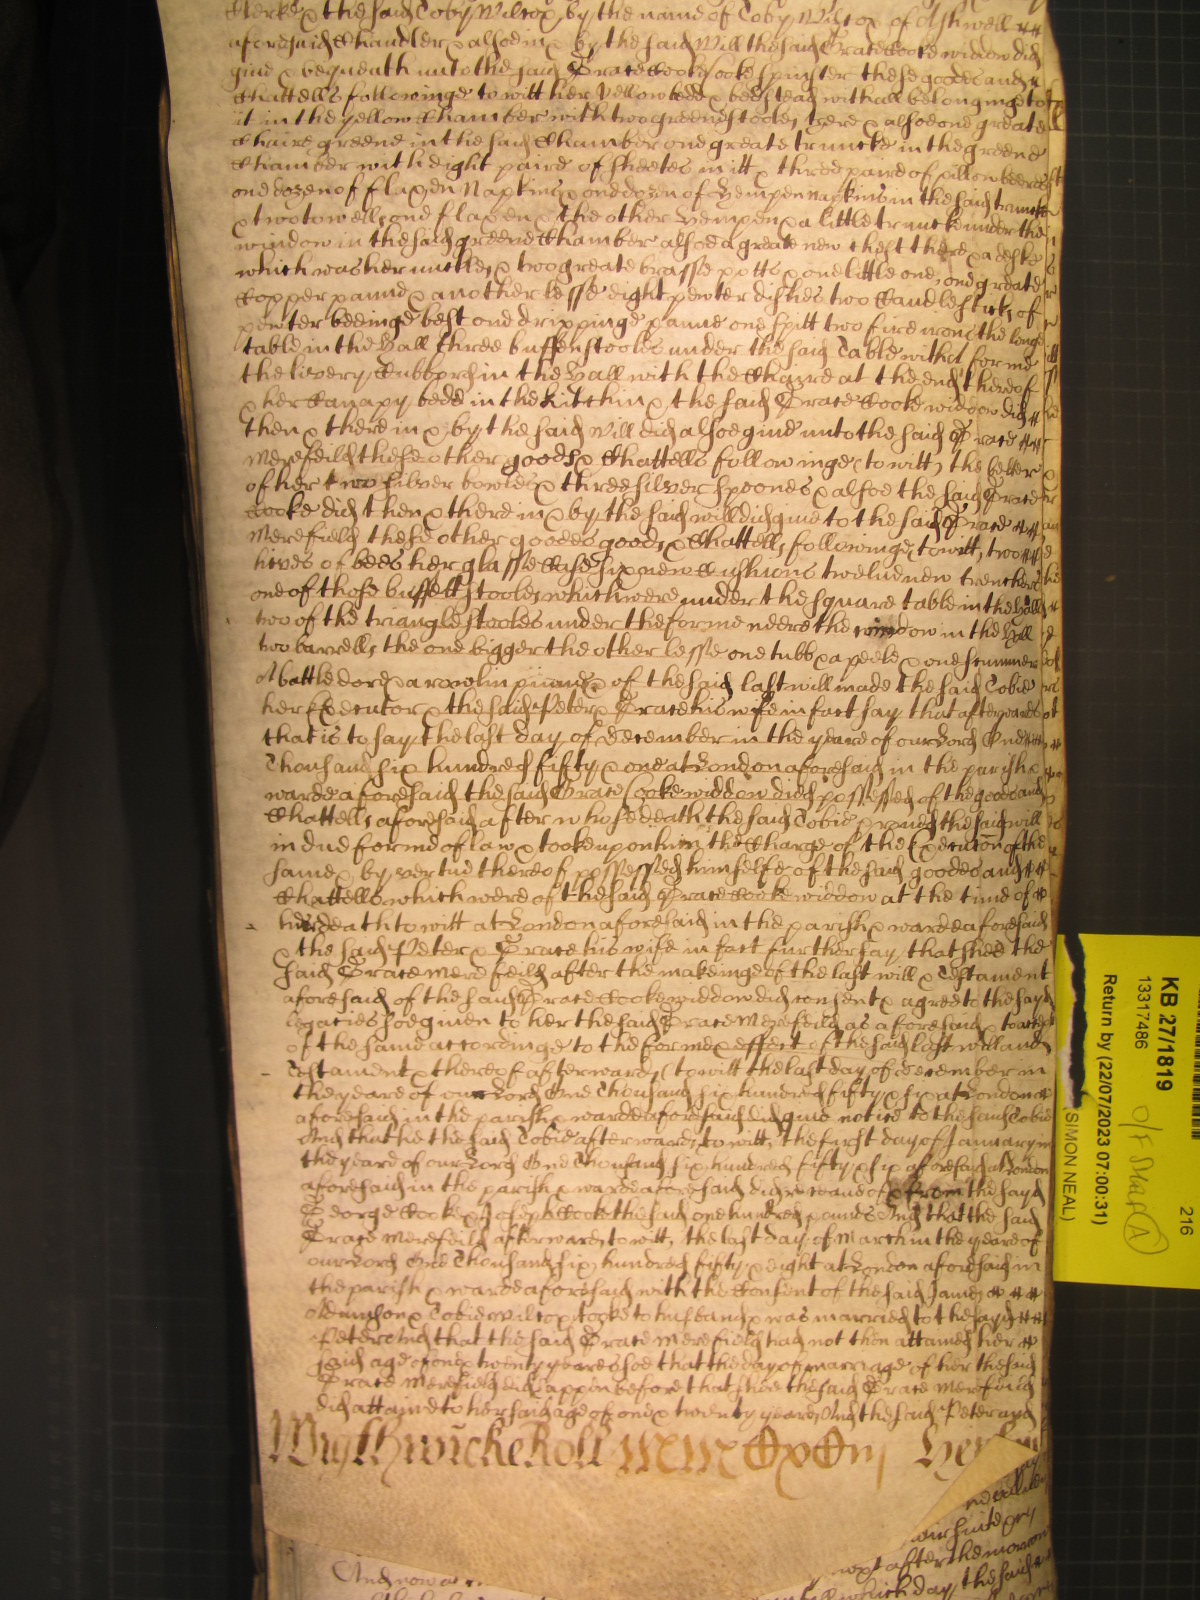 Clerke & the said Toby Wilcox by the name of Toby Wilcox of Ashwell
aforesaid Chandler & alsoe in & by the said Will the said Grace Cooke widdow did
give & bequeath unto the said Grace Cooke spinster these goodes and
Chattells followinge to witt her yellow bedd & bedstead with all belonginge to
it in the yellow Chamber with two greene stooles there & alsoe one greate
Chaire greene in the said Chamber one greate truncke in the greene
Chamber with eight paire of sheetes in itt & three paire of pillowbeeres
one dozen of flaxen Napkins & one dozen of hempen napkins in the said truncke
& two towells one flaxen & the other hempen & a little truncke under the
window in the said greene Chamber alsoe a greate new chest there & a deske
which was her unckles & two greate brasse potts & one little one, one greate
Copper panne & another lesse eight pewter dishes two Candlesticks of
pewter beeinge best one drippinge panne one spitt two fire irons the longe
table in the hall three buffen stooles under the said Table with forme
the livery Cubbord in the hall with the Chaire at the end thereof
& her Canapy bedd in the kitchin & the said Grace Cooke widdow did
then & there in & by the said Will did alsoe give unto the said Grace
Merefeild these other goods & Chattells followinge (to witt) the better
of her two silver bowles & three silver spoones & alsoe the said Grace
Cooke did then & there in & by the said will did give to the said Grace
Merefield these other goodes goods & Chattells followinge to witt, two
hives of bees her glasse Case six new Cushions twelve new trenchers
one of those buffett stooles which were under the square table in the hall
two of the triangle stooles under the forme neere the window in the hall
two barrells the one bigger the other lesse one tubb & a peele & one
A battledore & a rowlin pinn & of the said last will made the said Tobie
her Executor & the said Peter & Grace his wife in fact say that afterwards
that is to say the last day of December in the yeare of our Lord One
Thousand six hundred fifty & one at London aforesaid in the parish &
warde aforesaid the said Grace Cooke widdow died possessed of the goods and
Chattells aforesaid after whose death the said Tobie proved the said will
in due forme of law & tooke upon him the Charge of the Execution of the
same & by vertue thereof possessed himselfe of the said goodes and
Chattells which were of the said Grace Cooke widdow at the time of
her death to witt at London aforesaid in the parish & warde aforesaid
& the said Peter & Grace his wife in fact further say that shee the
said Grace Merefeild after the makeinge of the last will & Testament
aforesaid of the said Grace Cooke widdow did consent & agree to the said
legacies soe given to her the said Grace Merefeild as aforesaid &
of the same accordinge to the forme & effect of the said last will and
Testament & thereof afterwards (to witt) the last day of December in
the yeare of our Lord One Thousand six hundred fifty & at London
aforesaid in the parish & warde aforesaid did give notice to the said Tobie
And that he the said Tobie afterwards, to witt, the first day of January in
the yeare of our Lord One Thousand six hundred fifty & six aforesaid at London
aforesaid in the parish & warde aforesaid did receave of & from the sayd
George Cooke & Joseph Cooke the said one hundred pounds And that the said
Grace Merefeild afterwards to witt, the last day of March in the yeare of
our Lord One Thousand six hundred fifty & eight at London aforesaid in
the parish & warde aforesaid with the Consent of the said James
& Tobie Wilcox tooke to husband & was married to the sayd
Peter And that the said Grace Merefield had not then attained her
said age of one & twenty yeares soe that the day of marriage of her the said
Grace Merefield did happen before that shee the said Grace Merefeild
did attaine to her said age of one & twenty yeares And the said Peter and
Wightwicke Roll
And now at
next after the morrow
which day the said
KB 27/1819
13317486
Return by (22/07/2023 07:00:31)
SIMON NEAL)
216
A